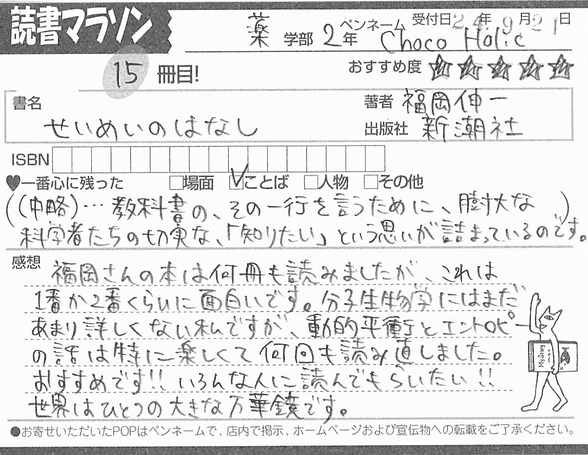 読書マラソン
薬 学部 2年 ペンネーム Choco Holic 受付日24年9月21日
15 冊目! おすすめ度 ☆☆☆☆☆
書名 せいめいのはなし
著者 福岡伸一
出版社 新潮社
ISBN
♥一番心に残った □場面 ☑ことば □人物 □その他
((中略)…教科書の、その一行を言うために、膨大な
科学者たちの切実な、「知りたい」という思いが詰まっているのです。)
感想 福岡さんの本は何冊も読みましたが、これは
1番か2番くらいに面白いです。分子生物学にはまだ
あまり詳しくない私ですが、動的平衡とエントロピー
の話は特に楽しくて何回も読み直しました。
おすすめです!! いろんな人に読んでもらいたい!!
世界はひとつの大きな万華鏡です。
●お寄せいただいたPOPはペンネームで、店内で掲示、ホームページおよび宣伝物への転載をご了承ください。